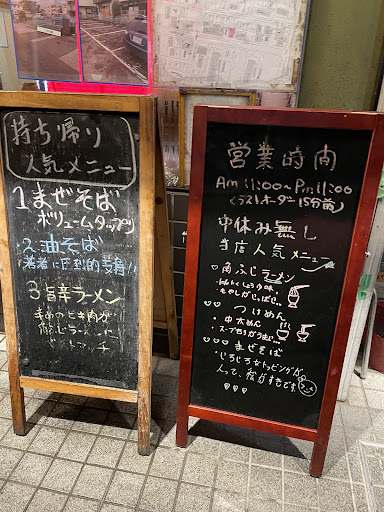 持ち帰り
人気メニュー
1.まぜそば
ボリュームタップリ
2.油そば
若者に圧倒的支持!!
3.旨辛ラーメン
営業時間
Am 11:00〜Pm 11:00
(ラストオーダー15分前)
中休み無し
当店人気メニュー
♡南ふじラーメン
もやしがしゃばしゃば。
♡♡つけめん
・中太めん
♡♡♡まぜそば
いろいろなトッピングが
入って、私がすきです
♡♡♡